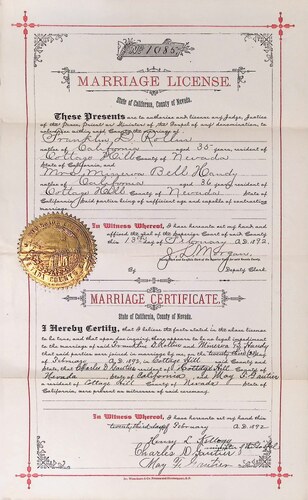 No 1085
MARRIAGE LICENSE.
State of California, County of Nevada.
These Presents are to authorize and license any Judge, Justice
of the Peace, Priest or Minister of the Gospel of any denomination, to
solemnize within said County the marriage of
Franklin D. Rollins
native of California aged 35 years, resident of
Cottage Hill County of Nevada
State of California, and
Mrs Minerva Bell Handy
native of California aged 36 years, resident of
Cottage Hill County of Nevada State of
California, said parties being of sufficient age and capable of contracting
marriage.
In Witness Whereof, I have hereunto set my hand and
affixed the seal of the Superior Court of said County
this 13th day of February A. D. 1892.
By Deputy Clerk
MARRIAGE CERTIFICATE.
State of California, County of Nevada.
I Hereby Certify, that I believe the facts stated in the above license
to be true, and that upon due inquiry there appears to be no legal impediment
to the marriage of said Franklin D Rollins and Minerva B Handy
that said parties were joined in marriage by me, on the twenty third day
of February A. D. 1892, in Cottage Hill said County and
State, that Charles D Gautier resident of Cottage Hill County of
Nevada State of California and May F. Gautier
a resident of Cottage Hill County of Nevada State of
California, were present as witnesses of said ceremony.
In Witness Whereof, I have hereunto set my hand this
twenty third day of February A. D. 1892.
Henry L. Kellogg
Minister of the Gospel
Charles D Gautier
May F. Gautier